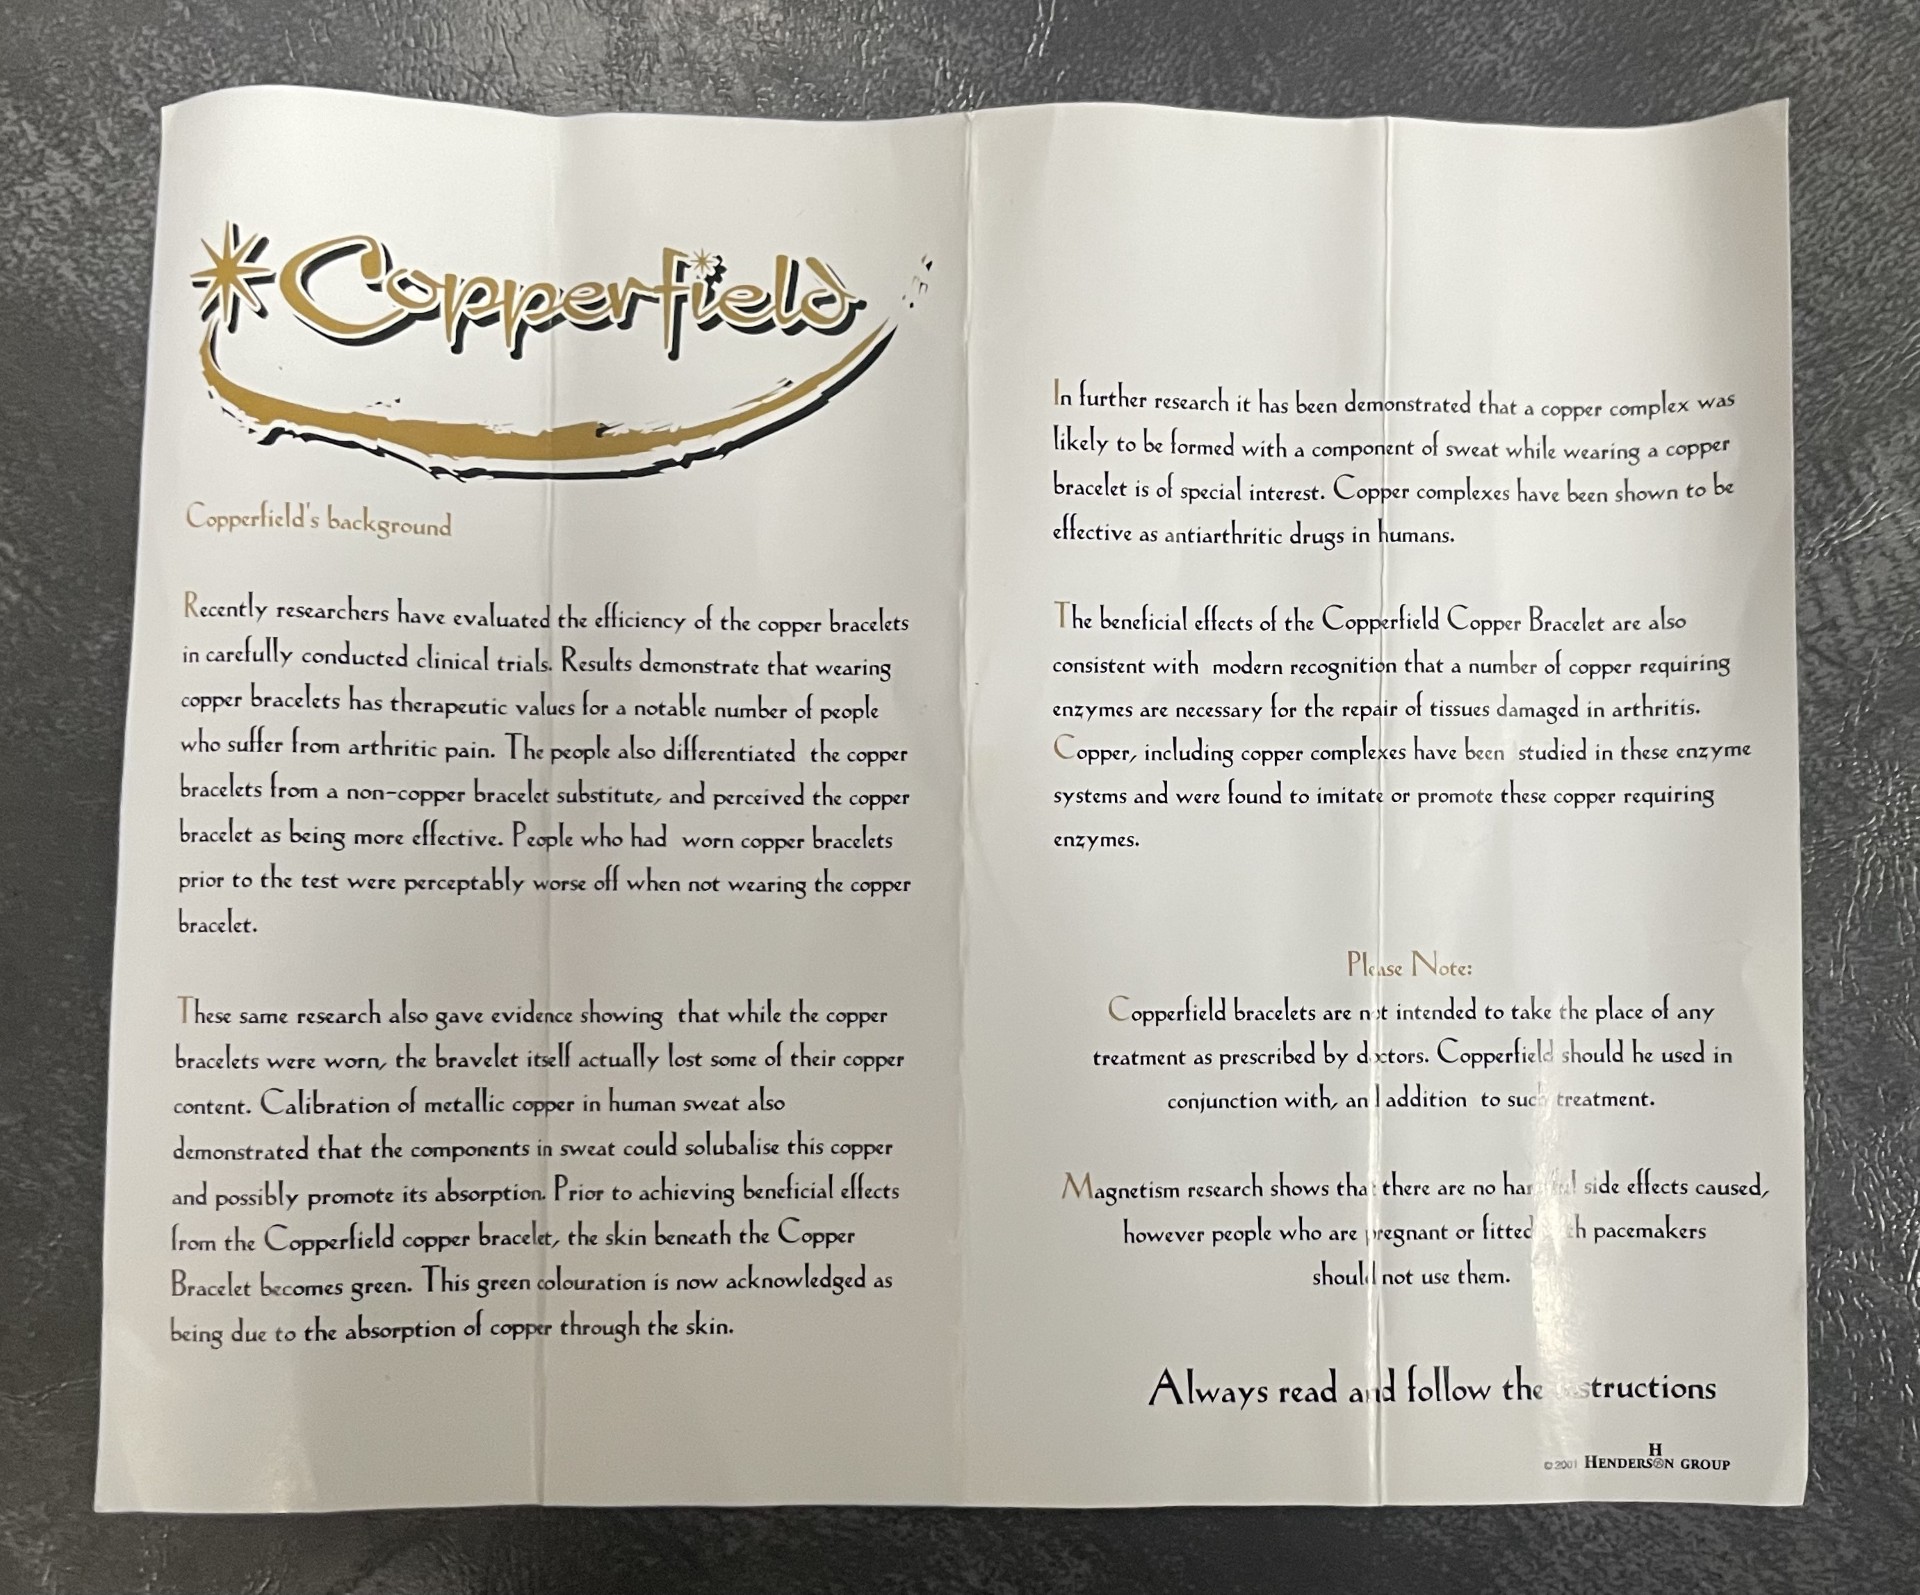 Copperfield
Copperfield's background
Recently researchers have evaluated the efficiency of the copper bracelets
in carefully conducted clinical trials. Results demonstrate that wearing
copper bracelets has therapeutic values for a notable number of people
who suffer from arthritic pain. The people also differentiated the copper
bracelets from a non-copper bracelet substitute, and perceived the copper
bracelet as being more effective. People who had worn copper bracelets
prior to the test were perceptably worse off when not wearing the copper
bracelet.
These same research also gave evidence showing that while the copper
bracelets were worn, the bravelet itself actually lost some of their copper
content. Calibration of metallic copper in human sweat also
demonstrated that the components in sweat could solubalise this copper
and possibly promote its absorption. Prior to achieving beneficial effects
from the Copperfield copper bracelet, the skin beneath the Copper
Bracelet becomes green. This green colouration is now acknowledged as
being due to the absorption of copper through the skin.
In further research it has been demonstrated that a copper complex was
likely to be formed with a component of sweat while wearing a copper
bracelet is of special interest. Copper complexes have been shown to be
effective as antiarthritic drugs in humans.
The beneficial effects of the Copperfield Copper Bracelet are also
consistent with modern recognition that a number of copper requiring
enzymes are necessary for the repair of tissues damaged in arthritis.
Copper, including copper complexes have been studied in these enzyme
systems and were found to imitate or promote these copper requiring
enzymes.
Please Note:
Copperfield bracelets are not intended to take the place of any
treatment as prescribed by doctors. Copperfield should he used in
conjunction with, and addition to such treatment.
Magnetism research shows that there are no harmful side effects caused,
however people who are pregnant or fitted with pacemakers
should not use them.
Always read and follow the instructions
H
© 2001 HENDERSON GROUP